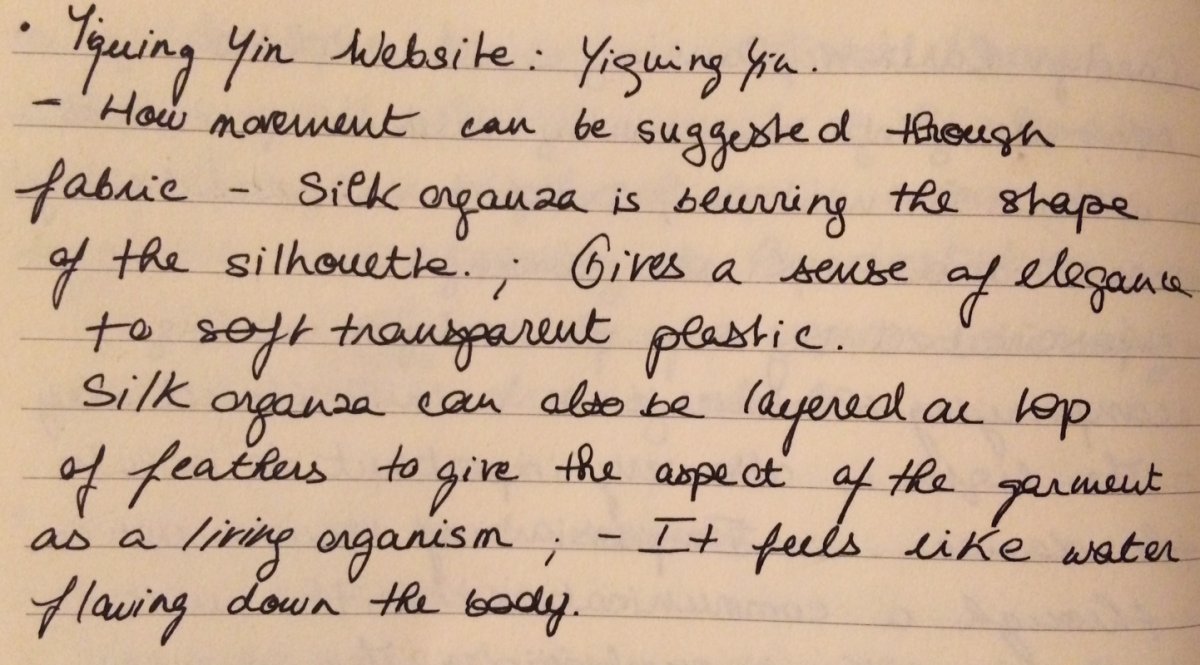 · Yiquing Yin Website: Yiquing Yin.
- How movement can be suggested through
fabric - Silk organza is blurring the shape
of the silhouette. ; Gives a sense of elegance
to soft transparent plastic.
Silk organza can also be layered on top
of feathers to give the aspect of the garment
as a living organism ; - It feels like water
flowing down the body.